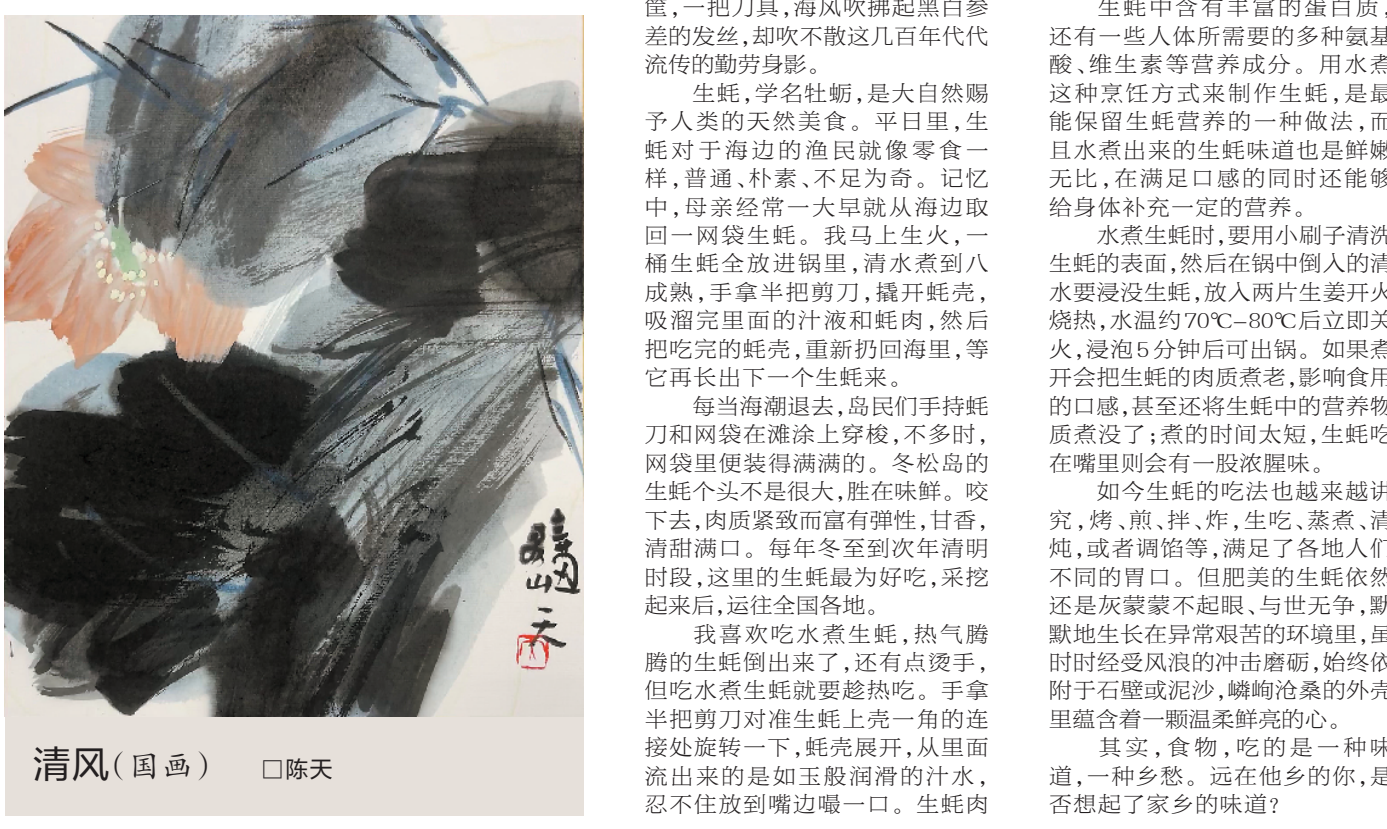 清风(国画) □陈天
筐,一把刀具,海风吹拂起黑白参
差的发丝,却吹不散这几百年代代
流传的勤劳身影。
生蚝,学名牡蛎,是大自然赐
予人类的天然美食。平日里,生
蚝对于海边的渔民就像零食一
样,普通、朴素、不足为奇。记忆
中,母亲经常一大早就从海边取
回一网袋生蚝。我马上生火,一
桶生蚝全放进锅里,清水煮到八
成熟,手拿半把剪刀,撬开蚝壳,
吸溜完里面的汁液和蚝肉,然后
把吃完的蚝壳,重新扔回海里,等
它再长出下一个生蚝来。
每当海潮退去,岛民们手持蚝
刀和网袋在滩涂上穿梭,不多时,
网袋里便装得满满的。冬松岛的
生蚝个头不是很大,胜在味鲜。咬
下去,肉质紧致而富有弹性,甘香,
清甜满口。每年冬至到次年清明
时段,这里的生蚝最为好吃,采挖
起来后,运往全国各地。
我喜欢吃水煮生蚝,热气腾
腾的生蚝倒出来了,还有点烫手,
但吃水煮生蚝就要趁热吃。手拿
半把剪刀对准生蚝上壳一角的连
接处旋转一下,蚝壳展开,从里面
流出来的是如玉般润滑的汁水,
忍不住放到嘴边嘬一口。生蚝肉
生蚝中含有丰富的蛋白质,
还有一些人体所需要的多种氨基
酸、维生素等营养成分。用水煮
这种烹饪方式来制作生蚝,是最
能保留生蚝营养的一种做法,而
且水煮出来的生蚝味道也是鲜嫩
无比,在满足口感的同时还能够
给身体补充一定的营养。
水煮生蚝时,要用小刷子清洗
生蚝的表面,然后在锅中倒入的清
水要浸没生蚝,放入两片生姜开火
烧热,水温约70℃–80℃后立即关
火,浸泡5分钟后可出锅。如果煮
开会把生蚝的肉质煮老,影响食用
的口感,甚至还将生蚝中的营养物
质煮没了;煮的时间太短,生蚝吃
在嘴里则会有一股浓腥味。
如今生蚝的吃法也越来越讲
究,烤、煎、拌、炸,生吃、蒸煮、清
炖,或者调馅等,满足了各地人们
不同的胃口。但肥美的生蚝依然
还是灰蒙蒙不起眼、与世无争,默
默地生长在异常艰苦的环境里,虽
时时经受风浪的冲击磨砺,始终依
附于石壁或泥沙,嶙峋沧桑的外壳
里蕴含着一颗温柔鲜亮的心。
其实,食物,吃的是一种味
道,一种乡愁。远在他乡的你,是
否想起了家乡的味道?